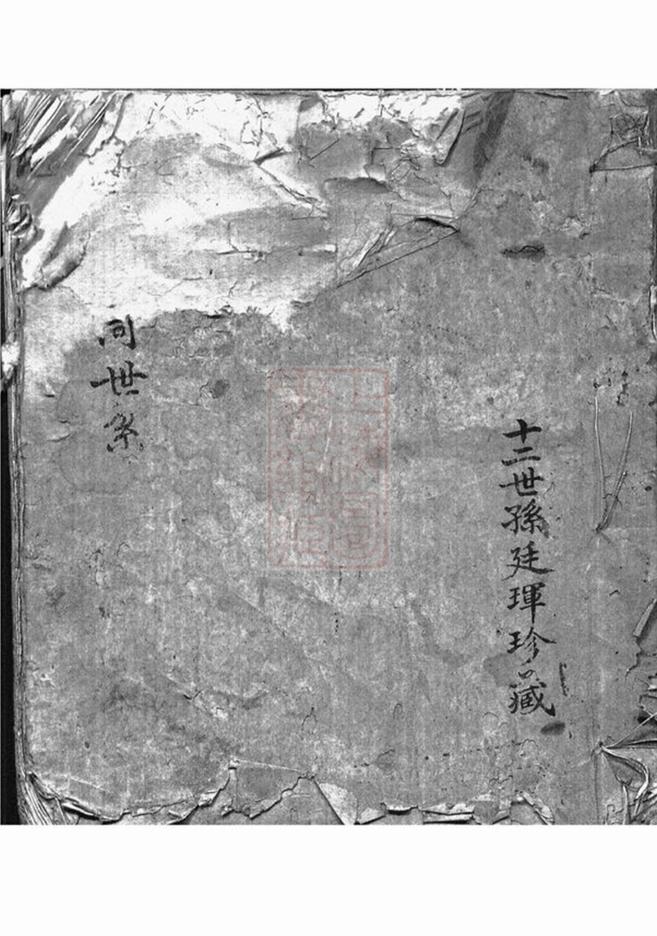 十二世孫廷琿珍藏
同世系